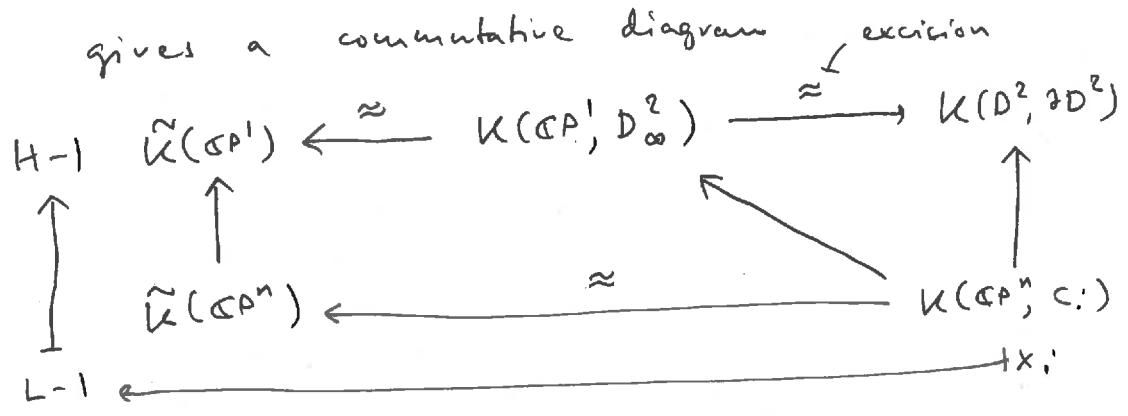 gives a commutative diagram excision
≈ ≈
H-1 K̃(ℂP¹) ← K(ℂP¹, D²_∞) → K(D², ∂D²)
↑ ↑ ↖ ↑
≈
K̃(ℂPⁿ) ← K(ℂPⁿ, C_i)
L-1 ← x_i